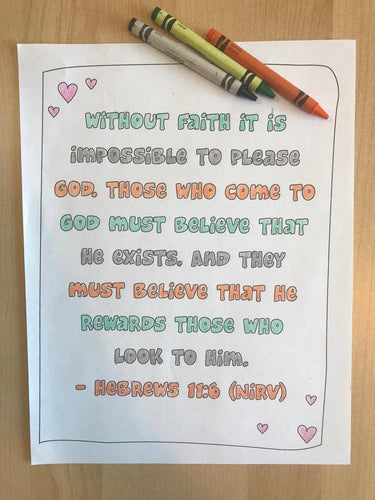 WITHOUT FAITH IT IS
IMPOSSIBLE TO PLEASE
GOD. THOSE WHO COME TO
GOD MUST BELIEVE THAT
HE EXISTS. AND THEY
MUST BELIEVE THAT HE
REWARDS THOSE WHO
LOOK TO HIM.
- HEBREWS 11:6 (NIRV)